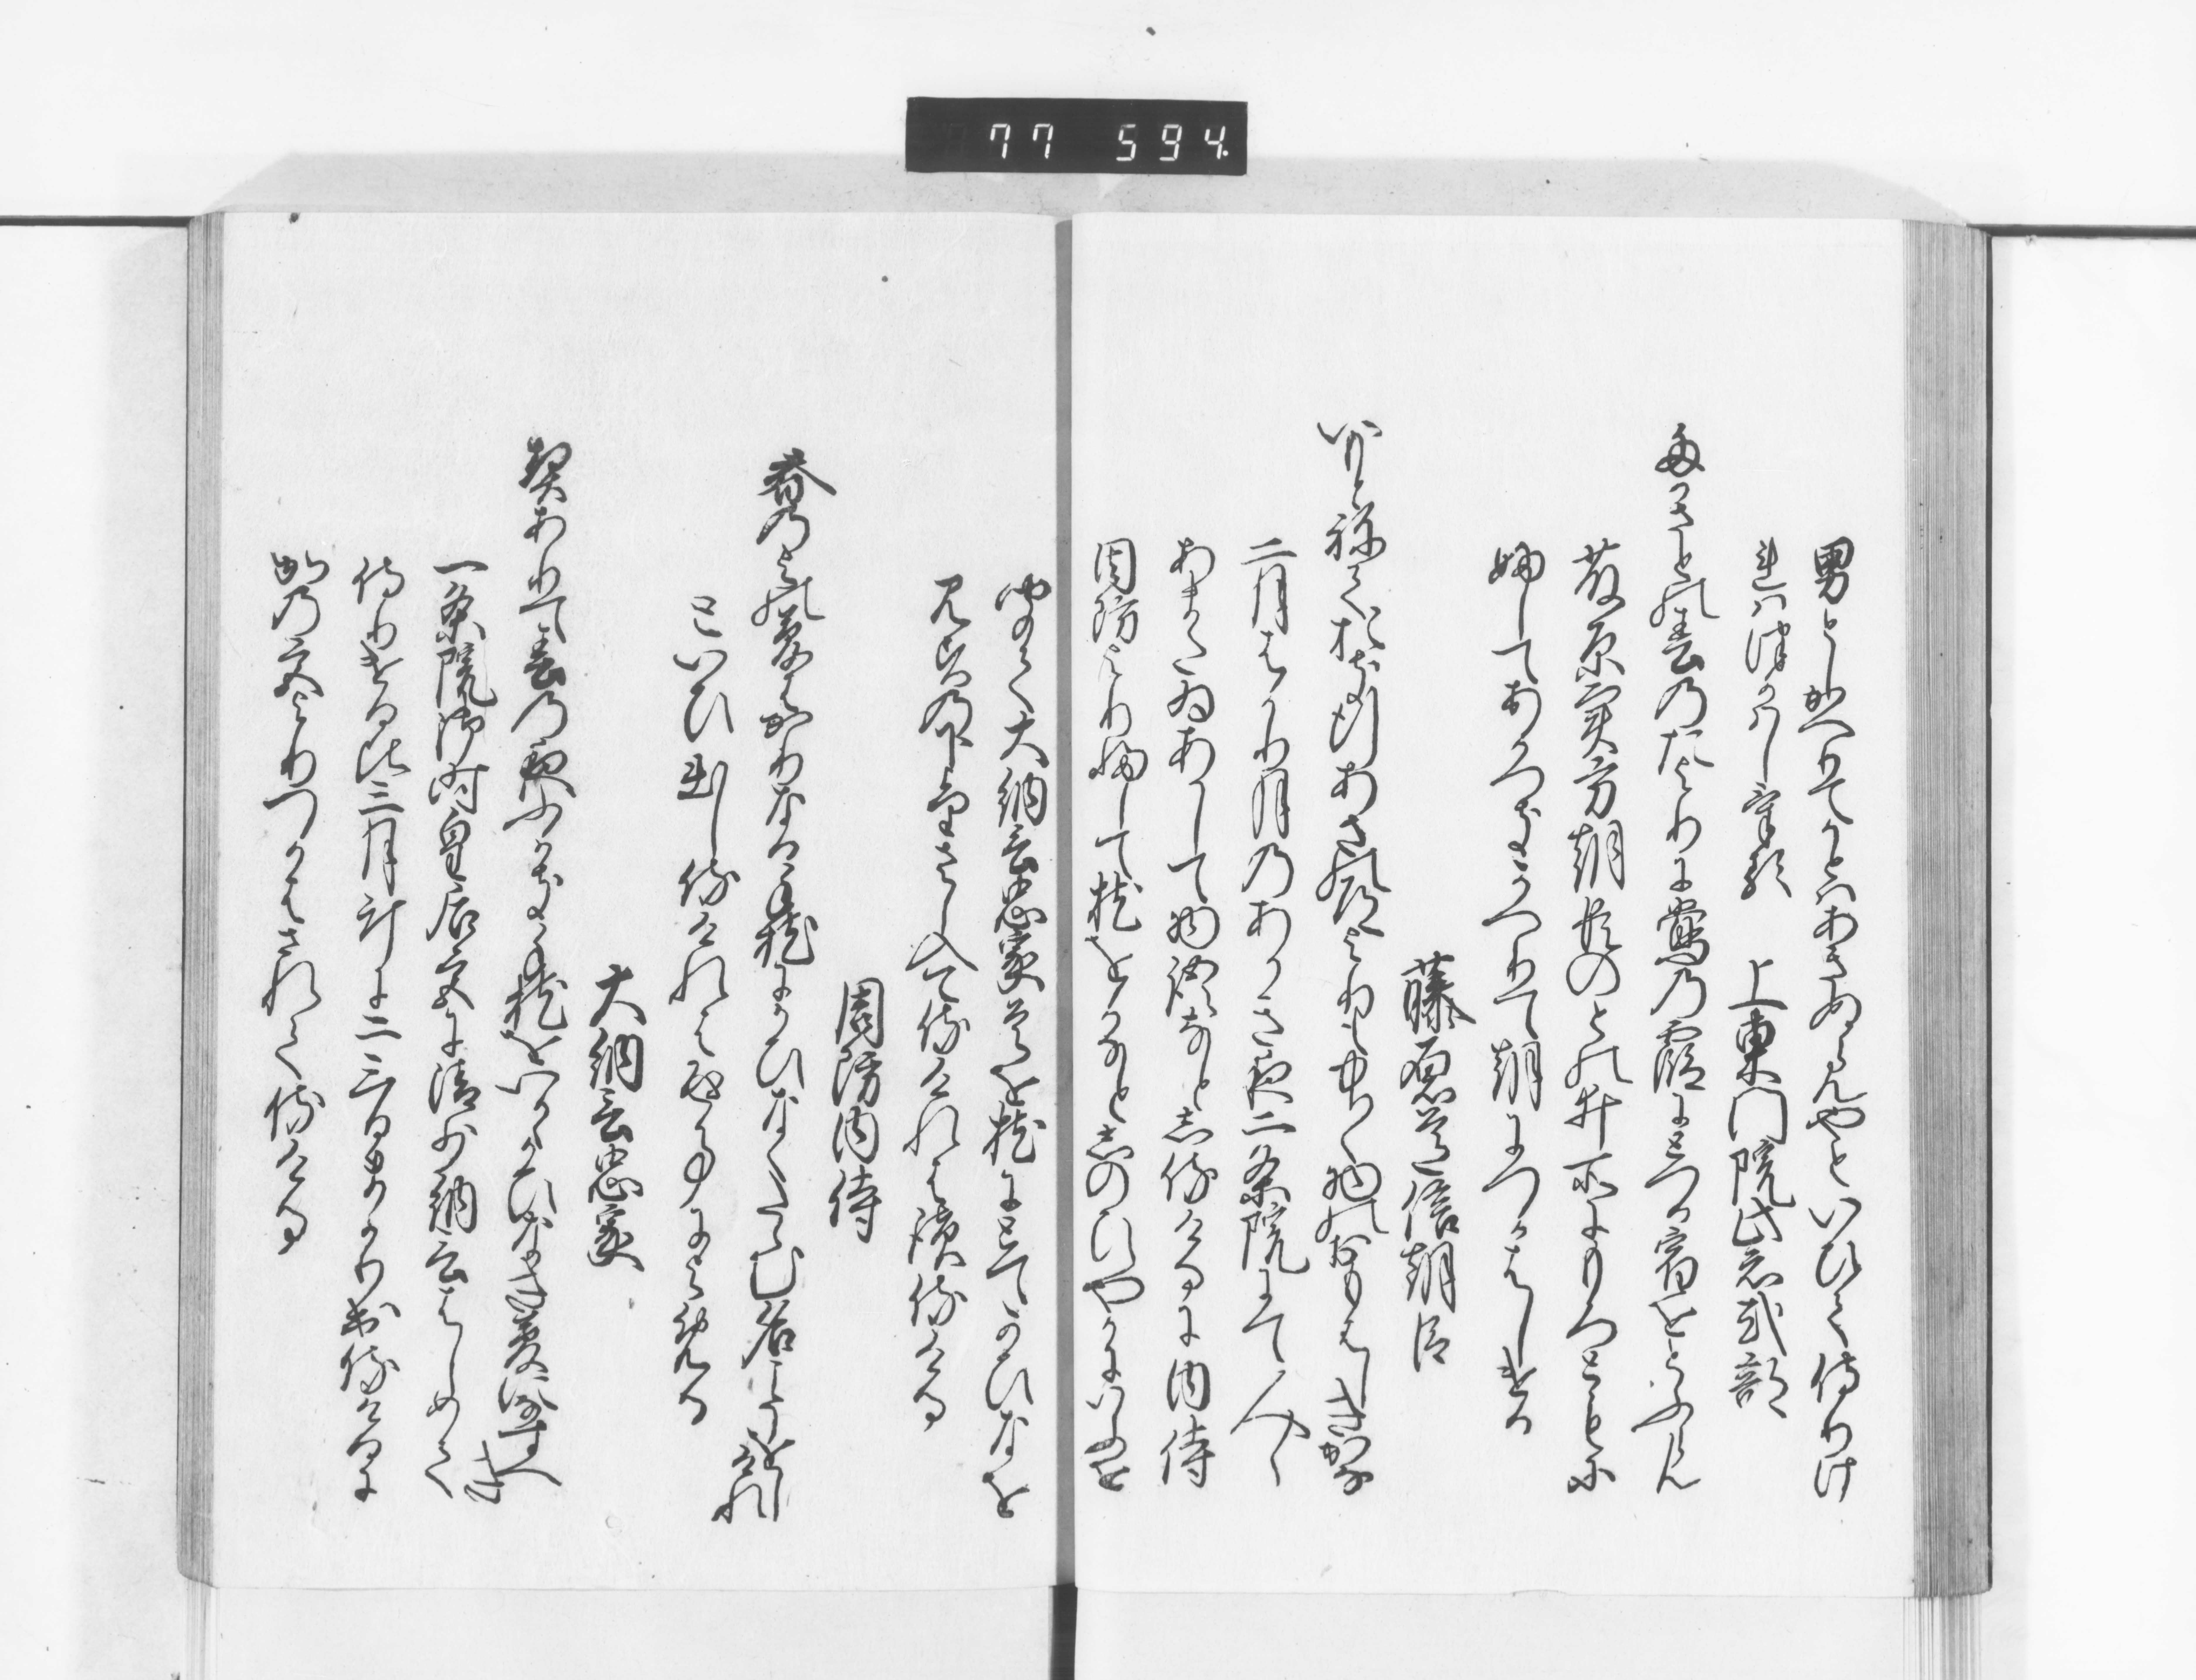 77 594
男としかへりてかとはあきぬらんやといひて侍りけ
れはつかはしける　上東門院紫式部
たかさとの春のたよりに鶯の霞にとつる宿をとふらん
藤原実方朝臣のとのゐ所にもろともに
ふしてあかつきかへりて朝につかはしける
藤原道信朝臣
いもとねておきゆくあさの道よりも中々物のおもはしきかな
二月はかり月のあかき夜二条院にて人々
あまたゐあかして物語なとし侍けるに内侍
周防よりふして枕をかなとしのひやかにいふを
きゝて大納言忠家是を枕にとてかひなを
みすの下よりさし入て侍けれは読侍ける
周防内侍
春のよの夢はかりなる手枕にかひなくたゝむ名こそをしけれ
といひ出し侍けれは返事によめる
大納言忠家
契ありて春の夜ふかき手枕をいかゝかひなき夢になすへき
一条院御時皇后宮に清少納言はしめて
侍りける比三月計に二三日まかり出侍けるに
かの宮よりつかはされて侍ける